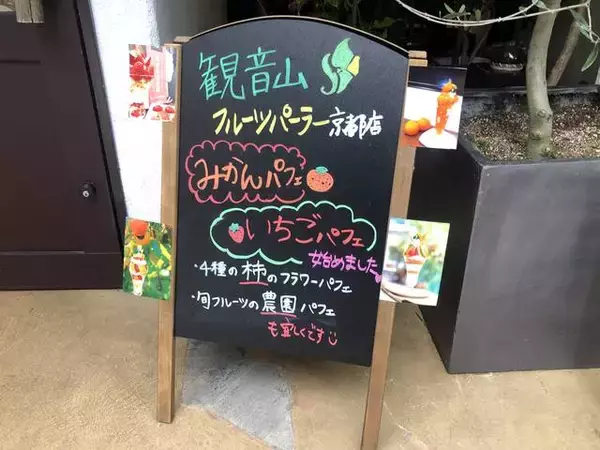 観音山
フルーツパーラー京都店
みかんパフェ
いちごパフェ
始めました
・4種の柿のフラワーパフェ
・旬フルーツの農園パフェ
も宜しくです